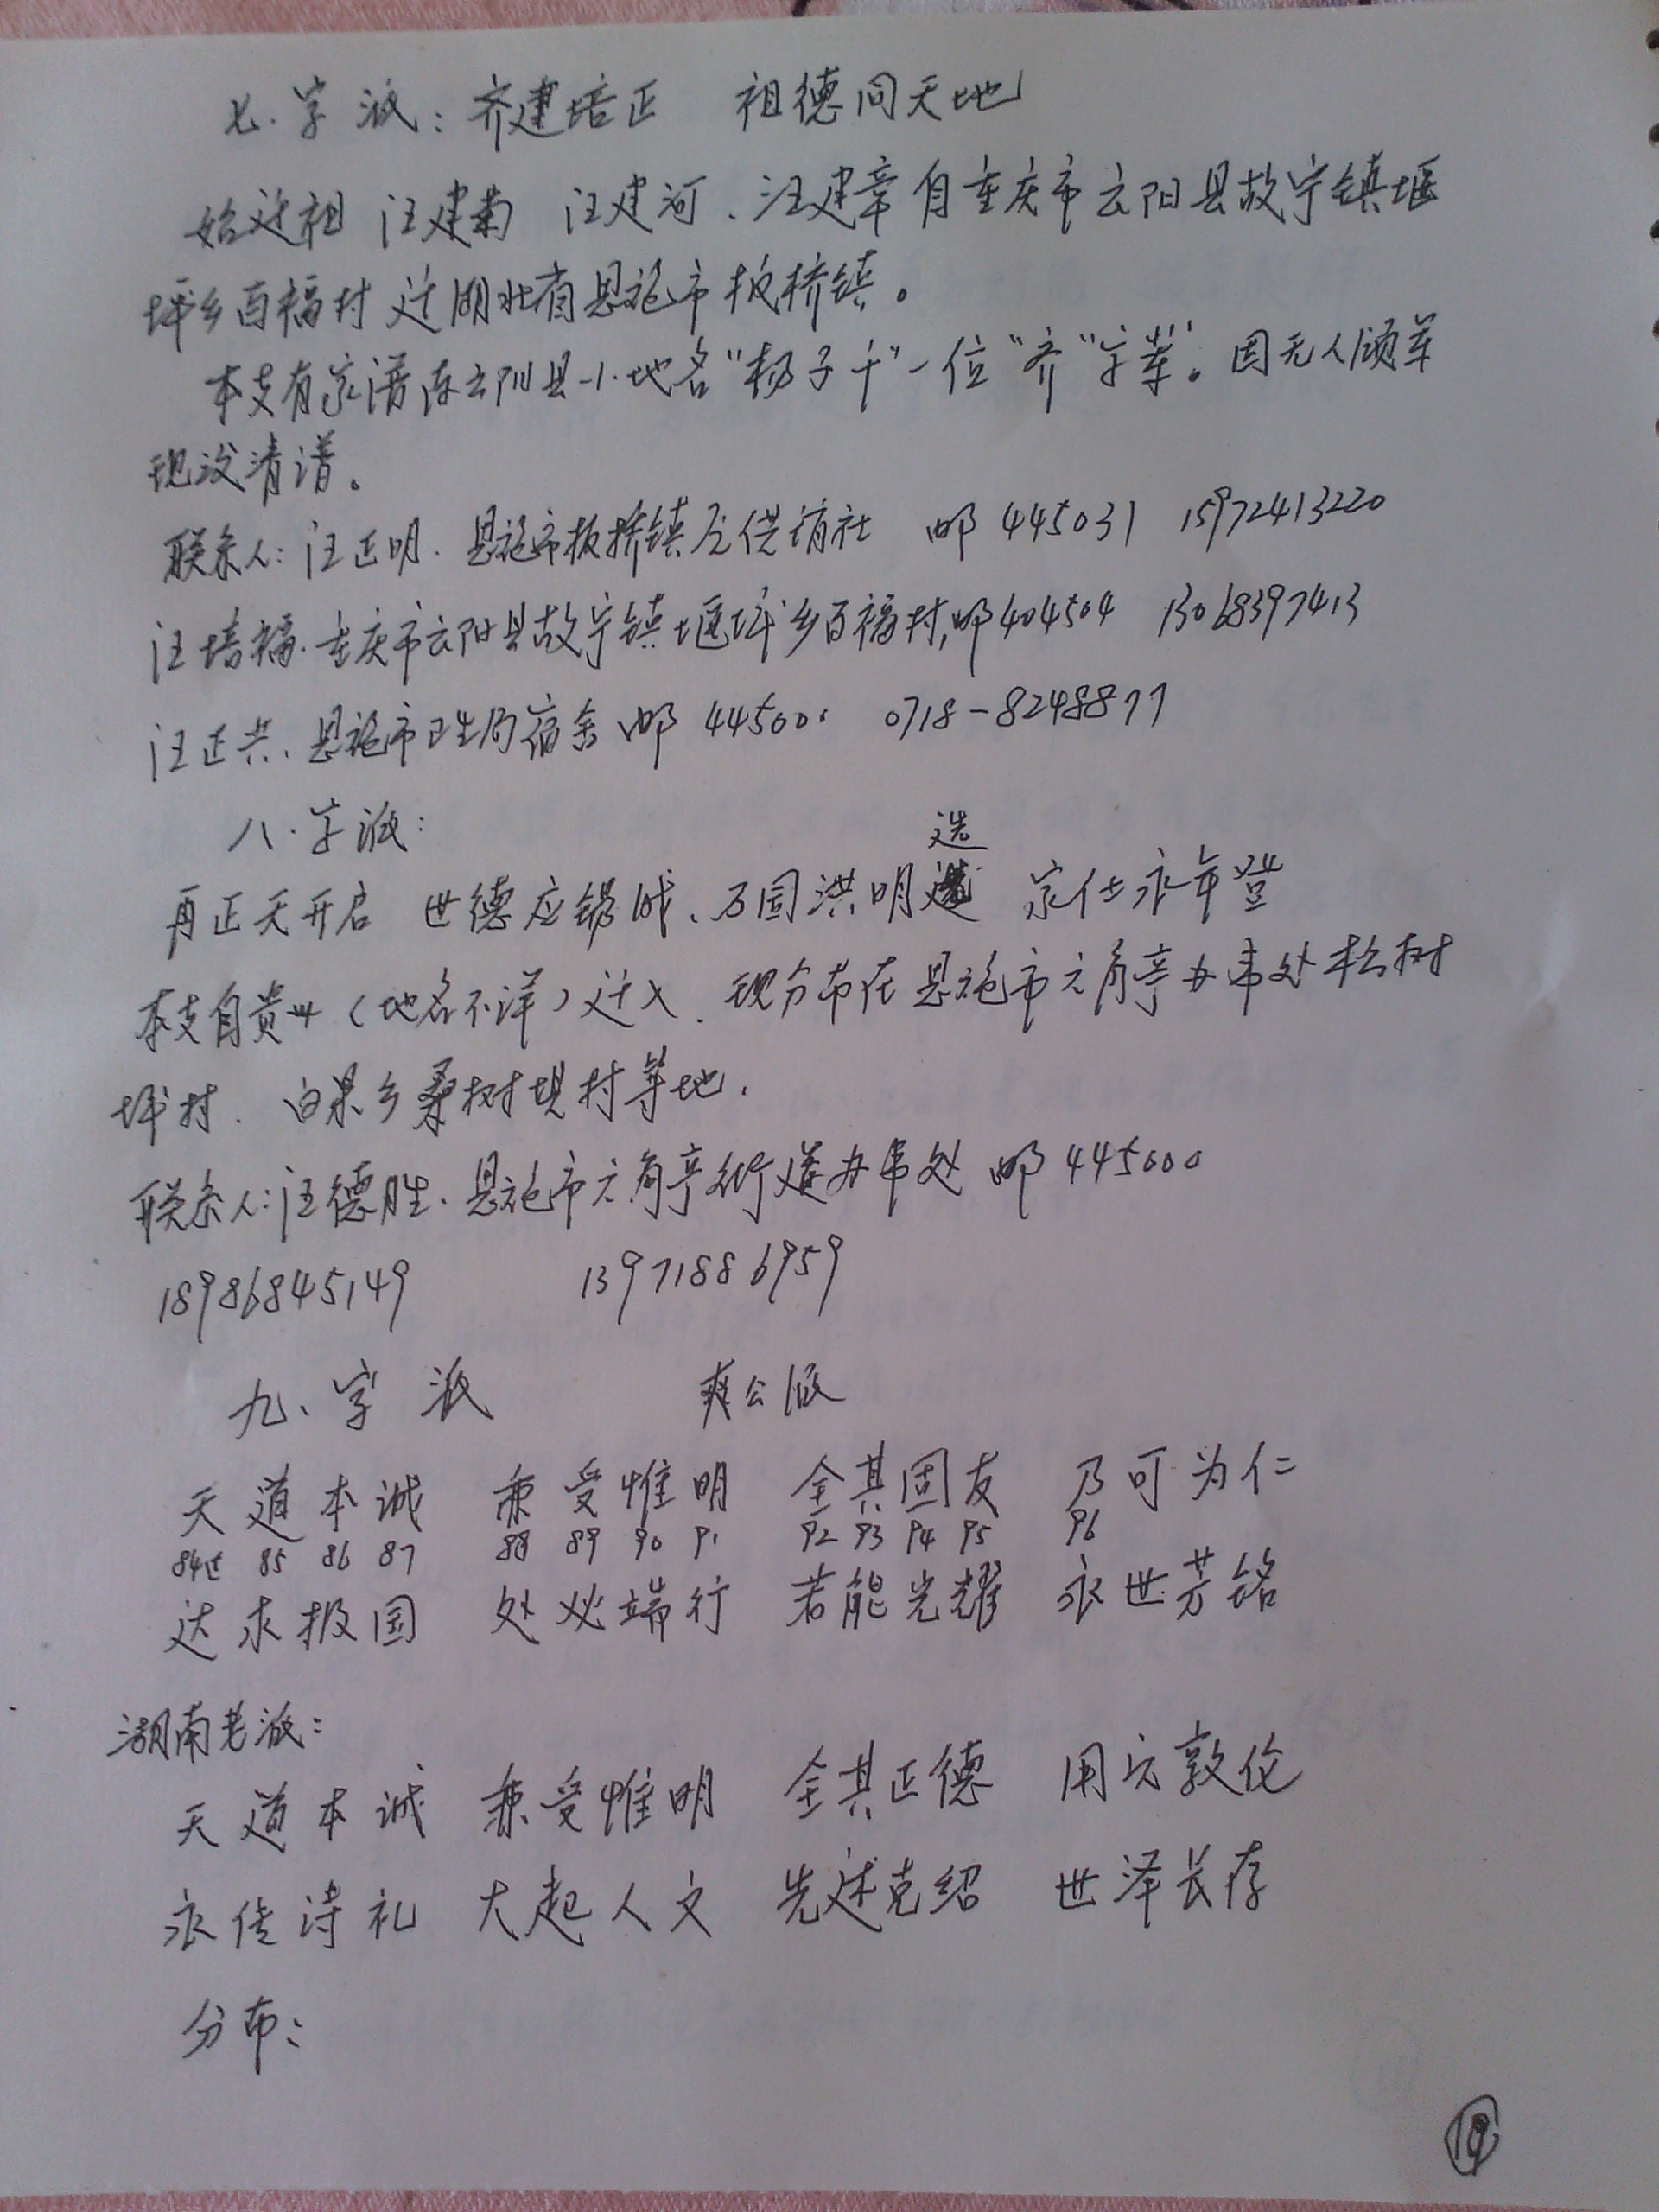 七.字派：齐建培正 祖德同天地
始迁祖 汪建南 汪建河、汪建章自重庆市云阳县故宁镇堰
坪乡百福村迁湖北省恩施市板桥镇。
本支有家谱存云阳县-小地名“杨子千”一位“齐”字辈。因无人领单
现没清谱。
联系人：汪正明.恩施市板桥镇 供销社 邮 445031 15972413220
汪培福.重庆市云阳县故宁镇堰坪乡百福村，邮404504 13068397413
汪正兴、恩施市卫生局宿舍 邮 445000 0718-8248877
八.字派：
选
再正天开启 世德应锡成、万国洪明 家仕永年登
本支自贵州（地名不详）迁入.现分布在恩施市六角亭办事处松树
坪村.白果乡桑树坝村等地.
联系人：汪德胜.恩施市六角亭街道办事处 邮 445000
18986845149 13971886959
九、字派 爽公派
天道本诚 兼受惟明 全其固友 乃可为仁
84世 85 86 87 88 89 90 91 92 93 94 95 96
达求报国 处必端行 若能光耀 永世芳铭
湖南老派：
天道本诚 兼受惟明 全其正德 用宏敦伦
永传诗礼 大起人文 先述克绍 世泽长存
分布：